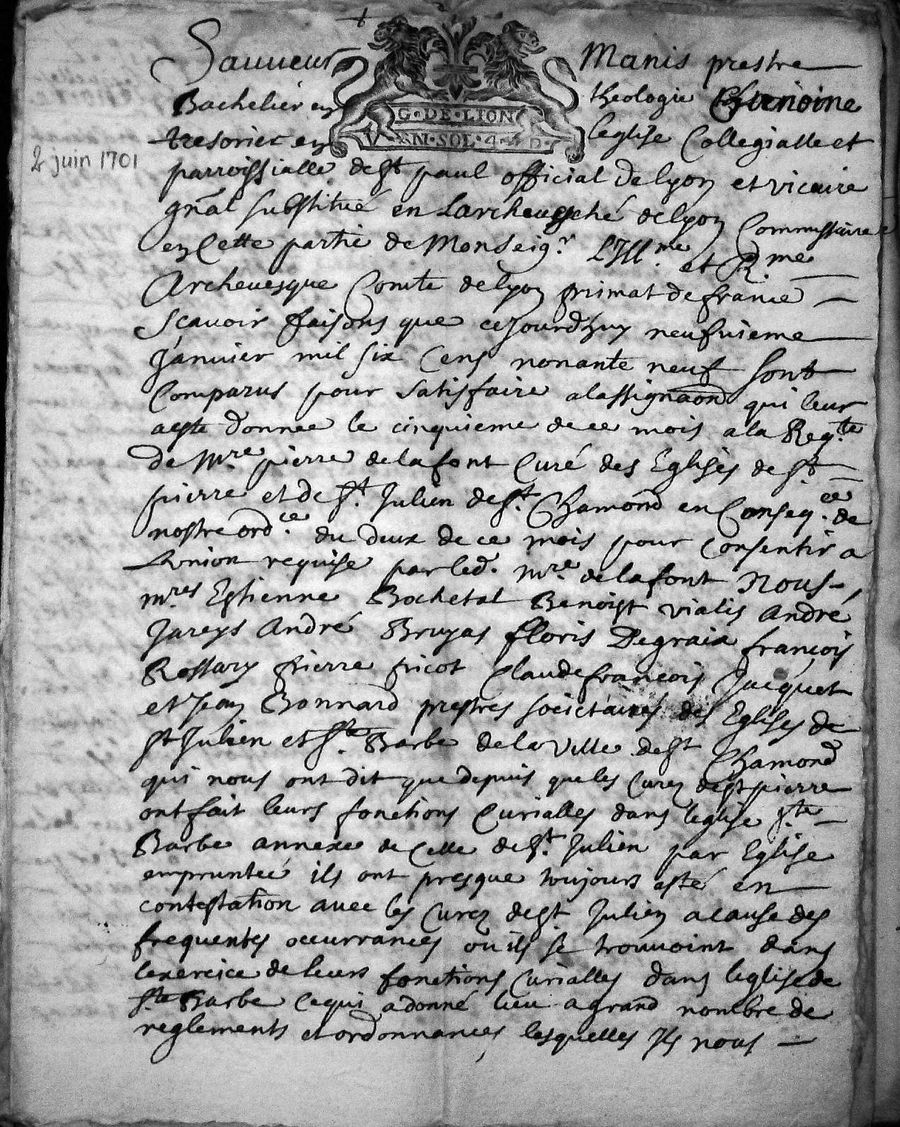 Sauueur Manis prestre
Bachelier en theologie Chenoine
G·DE·LION
AN·SOL·4·D
tresorier en leglise Collegialle et
2 juin 1701
parroissialle de St paul official de lyon et vicaire
gnal substitué en Larcheuesché de lyon Commissaire
en Cette partie de Monseigr LIllme et Rme
Archeuesque Comte de lyon primat de france
Scauoir faisons que cejourdhuy neufuieme
Januier mil six Cens nonante neuf sont
Comparus pour satisfaire alassignaõn qui leur
aeste donnée le cinquieme de ce mois a la Reqte
de Mre pierre de la font Curé des Eglises de St
pierre et de St Julien de St Chamond en Conseqce de
nostre ordce du deux de ce mois pour Consentir a
Lunion requise par led. mre de la font Nous
mres Estienne Bochetal Benoist vialis André
Jareys André Bruyas floris Degraix francois
Rossary Pierre fricot Claude francois Jacquet
et Jean Bonnard prestres societaires des Eglises de
St Julien et Ste Barbe de la ville de St Chamond
qui nous ont dit que depuis que les Curez de St pierre
ont fait leurs fonctions Curialles dans leglise Ste
Barbe annexe de Celle de St Julien par Eglise
empruntée ils ont presque toujours esté en
contestation auec les Curez de St Julien a cause des
frequentes occurrances ou ils se trouuoint dans
lexercice de leurs fonctions Curialles dans leglise de
Ste Barbe Ce qui a donné lieu a grand nombre de
reglements et ordonnances lesquelles Ils nous